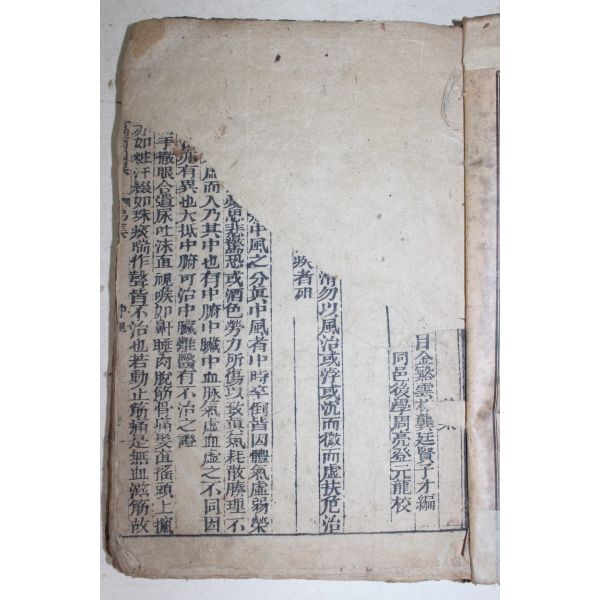 集
日金谿雲林龔廷賢子才編
同邑後學周亮登元龍校
清勿以風治或浮或沉而微而虛扶危治
疾者
中風之分真中風者中時卒倒皆因體氣虛弱榮
憂思悲驚恐或酒色勞力所傷以致真氣耗散腠理不
虛而入乃其中也有中腑中臟中血脉氣虛血虛之不同因
亦有異也大抵中腑可治中臟難醫有不治之證
手撒眼合遺尿吐沫直視喉如鼾睡肉脫筋骨痛髮直搖頭上攛
如粧汗綴如珠痰喘作聲皆不治也若動止筋痛是無血滋筋故